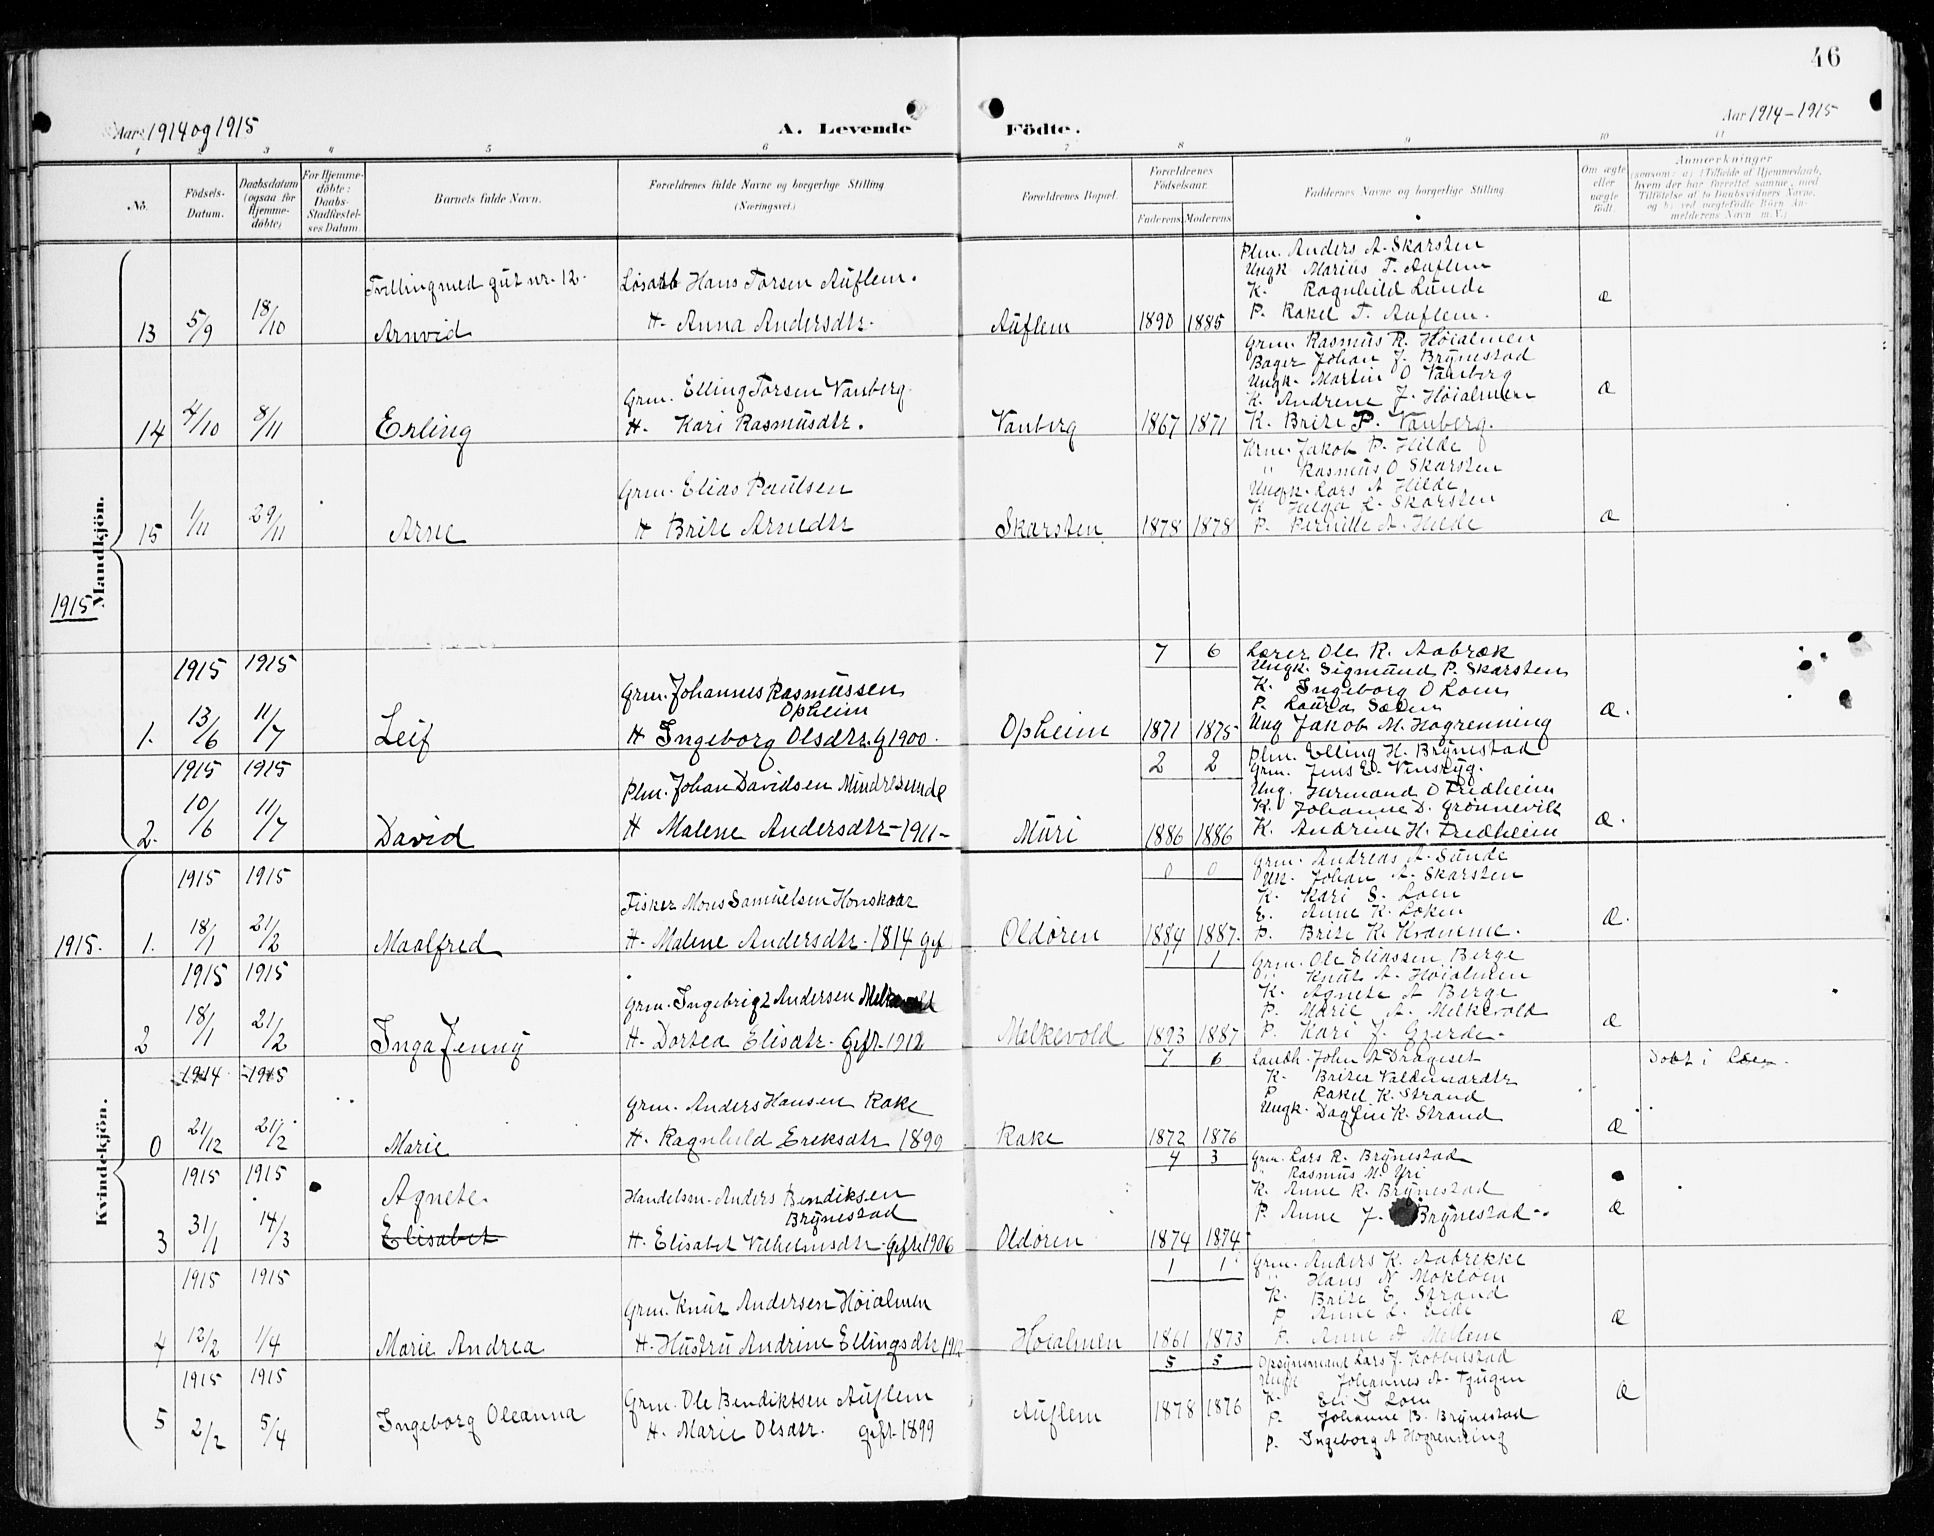 46
Aar 1914 og 1915
A. Levende
Födte.
Aar 1914-1915
1 2 3 4 5 6 7 8 9 10 11
No.
Födsels-Datum.
Daabsdatum (ogsaa for Hjemme-döbte)
For Hjemme-döbte: Daabs-Stadfæstel-ses Datum.
Barnets fulde Navn.
Forældrenes fulde Navne og borgerlige Stilling (Næringsvei.)
Forældrenes Bopæl.
Forældrenes Födselsaar.
Faderens Moderens
Faddernes Navne og borgerlige Stilling
Om ægte eller uægte födt.
Anmærkninger
(saasom: a) i Tilfælde af Hjemmedaab, hvem der har forrettet samme, med Tilföielse af to Daabsvidners Navne, og b) ved uægtefödte Börn An-melderens Navn m.V.)
Mandkjön.
13 5/9 18/10
Tvilling med gut nr. 12.
Arnvid
Hans Torsen Auflem.
H. Anna Andersdtr.
Auflem
1890 1885
Plm. Anders A. Skarsten
Ungk Marius T. Auflem
K. Ragnhild Sunde
P. Rakel T. Auflem.
Æ
14 4/10 8/11
Erling
Grm. Elling Torsen Vanberg
H. Kari Rasmusdtr.
Vanberg
1867 1871
Grm. Rasmus R. Høialmen
Bager Johan J. Brynestad
Ungk. Martin O Vanberg
K. Andrene J. Høialmen
K. Brite P. Vanberg.
Æ
15 1/11 29/11
Arne
Grm. Elias Paulsen
H Brite Arnedtr
Skarsten
1878 1878
Krm. Jakob P. Hilde
" Rasmus O Skarsten
Ungk. Lars A Hilde
K Helga L. Skarsten
P. Pernille A. Hilde
Æ
1915
1. 1915 13/6 1915 11/7
Leif
Grm. Johannes Rasmussen
Opheim
H Ingeborg Olsdtr. g 1900.
Opheim
7 6
1871 1875
Lærer Ole R. Aabrek
Ungk. Sigmund P. Skarsten
K. Ingeborg O Loen
P. Laura Sæten
Ung Jakob M. Hogrenning
Æ.
2. 1915 10/6 1915 11/7
David
Plm. Johan Davidsen Mindresunde
H Malene Andersdtr - 1911 -
Muri
2 2
1886 1886
Plm. Elling H. Brynestad
Grm. Jens E. Vinsryg.
Ung. Jermand O Fredheim
K. Johanne D. Grønnevik
K. Andrine H. Fredheim
Æ.
Kvindekjön.
1915. 1. 1915 18/1 1915 21/2
Maalfred
Fisker Mons Samuelsen Honskaar
H. Malene Andersdtr. 1814 gif
Oldøren
0 0
1884 1887.
Grm. Andreas A. Sunde
Uk. Johan A. Skarsten
K. Kari S. Loen
E. Anne K. Loken
P. Brite K. Kvamme.
Æ.
2 1915 18/1 1915 21/2
Inga Jenny
Grm. Ingebrigt Andersen Melkevold
H. Dortea Elisdtr. Gift 1912
Melkevold
1 1
1893 1887
Grm. Ole Eliassen Berge
" Knut A. Høialmen
K. Agnete A Berge
P. Marie A. Melkevold
P. Kari J. Gjerde.
Æ
0 1914 21/12 1915 21/2
Marie
Grm. Anders Hansen Rake
H. Ragnhild Eriksdtr 1899
Rake
7 6
1872 1876
Landh. John A Drageset
K. Brite Valdemardtr
P Rakel K. Strand
Ungk. Dagfin K. Strand
Æ
Døbt i Loen.
3 1915 31/1 1915 14/3
Agnete.
Elisabet
Handelsm. Anders Bendiksen
Brynestad
H. Elisabet Vilhelmsdtr. Gift 1906
Oldøren
4 3
1874 1874
Grm. Lars R. Brynestad
" Rasmus M. Yri
K. Anne R. Brynestad
P. Anne J. Brynestad
Æ
4 1915 12/2 1915 1/4
Marie Andrea
Grm. Knut Andersen Høialmen
H. Hustru Andrine Ellingsdtr 1912
Høialmen
1 1
1861 1873
Grm. Anders K. Aabrekke
" Hans N Mokloen
K. Brite E. Strand
P Anne L. Eide
P. Anne A Mellem
Æ
5 1915 2/2 1915 5/4
Ingeborg Oleanna
Grm. Ole Bendiktsen Auflem
H. Marie Olsdtr. gift 1899
Auflem
5 5
1878 1876
Opsynsmand Lars J. Kobberstad
Ungk Johannes A. Tjugen
K. Eli J Loen
P. Johanne B. Brynestad
P. Ingeborg A Hogrenning
Æ